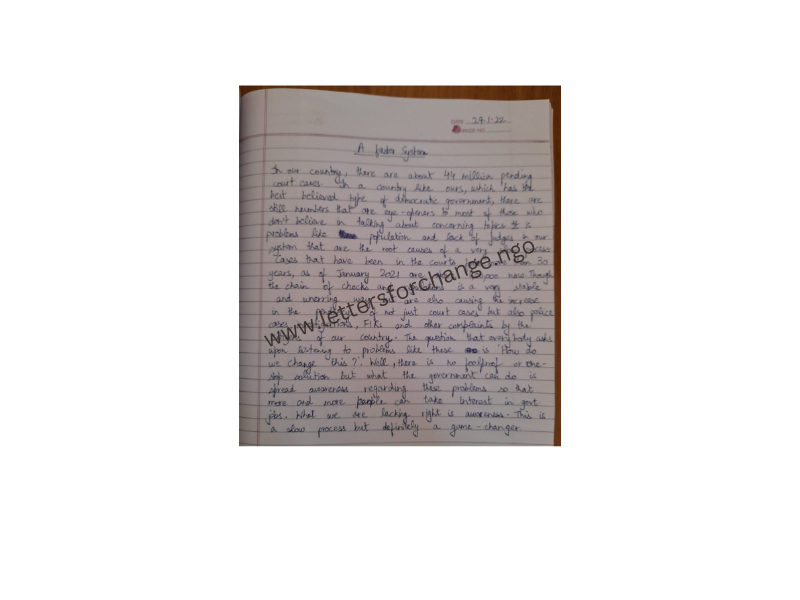 DATE: 29-1-22
PAGE NO.
A faster System
In our country, there are about 44 million pending
court cases. In a country like ours, which has the
best believed type of democratic government, there are
still numbers that are eye-openers to most of those who
don't believe in talking about concerning topics. It is
problems like population and lack of judges in our
system that are the root causes of a very
Cases that have been in the courts for 30
years, as of January 2021 are now. Though
the chain of checks and is a very stable
and unerring we are also causing the increase
in the of not just court cases but also police
cases, FIRs and other complaints by the
of our country. The question that everybody asks
upon listening to problems like these is 'How do
we change this?'. Well, there is no foolproof or one-
step solution but what the government can do is
spread awareness regarding these problems so that
more and more people can take interest in govt
jobs. What we are lacking right is awareness. This is
a slow process but definitely a game-changer.
www.lettersforchange.ngo